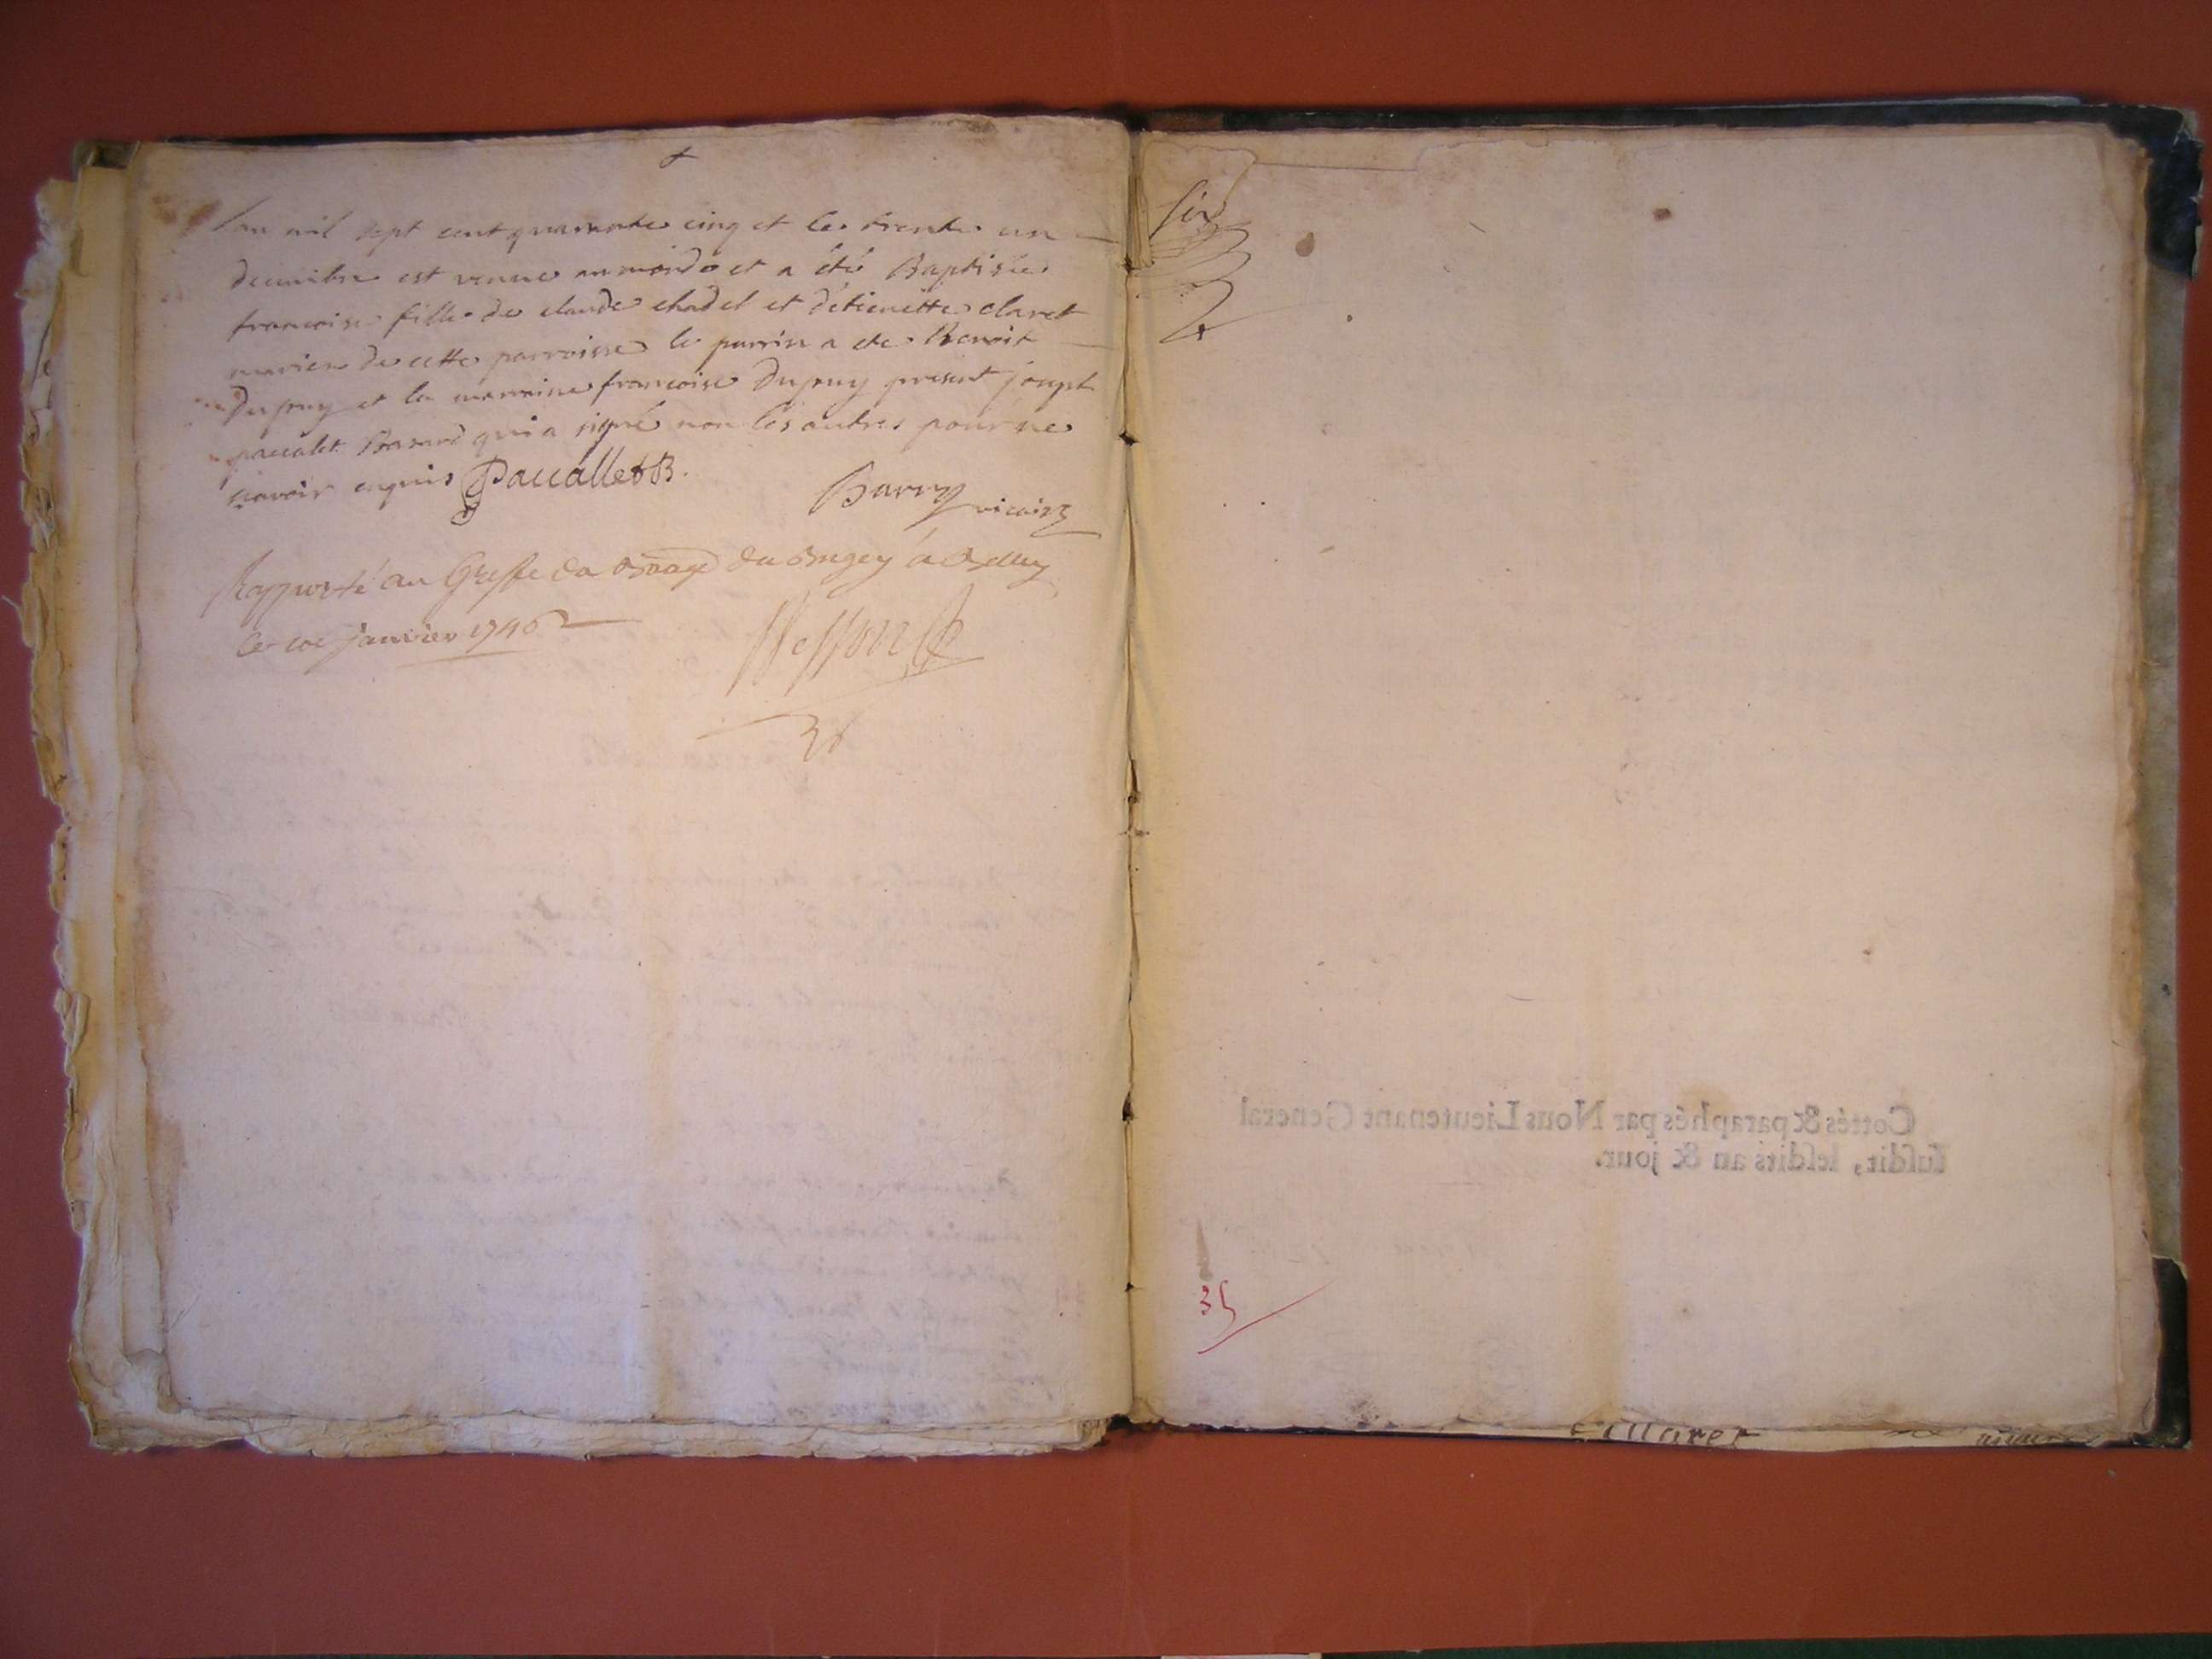 Lan mil sept cent quarante cinq et le trente un
decembre est venue au monde et a été Baptisée
francoise fille de claude chadel et d'etienette claret
mariez de cette parroisse le parrin a ete Benoit
Dupuy et la marraine francoise Dupuy present joseph
paucalet Basard qui a signé non les autres pour ne
scavoir enquis PaucalletB.
Barry vicaire
Rapporté au Greffe du Bâage du Bugey à Belley
le janvier 1746
36
Six
Cottés & paraphés par Nous Lieutenant General
susdit, lesdits an & jour.
35